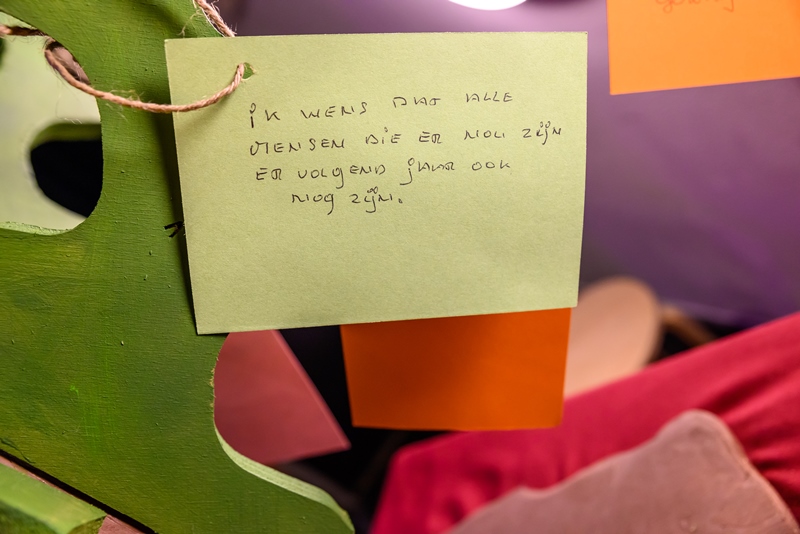 ik wens dat alle
mensen die er nog zijn
er volgend jaar ook
nog zijn.